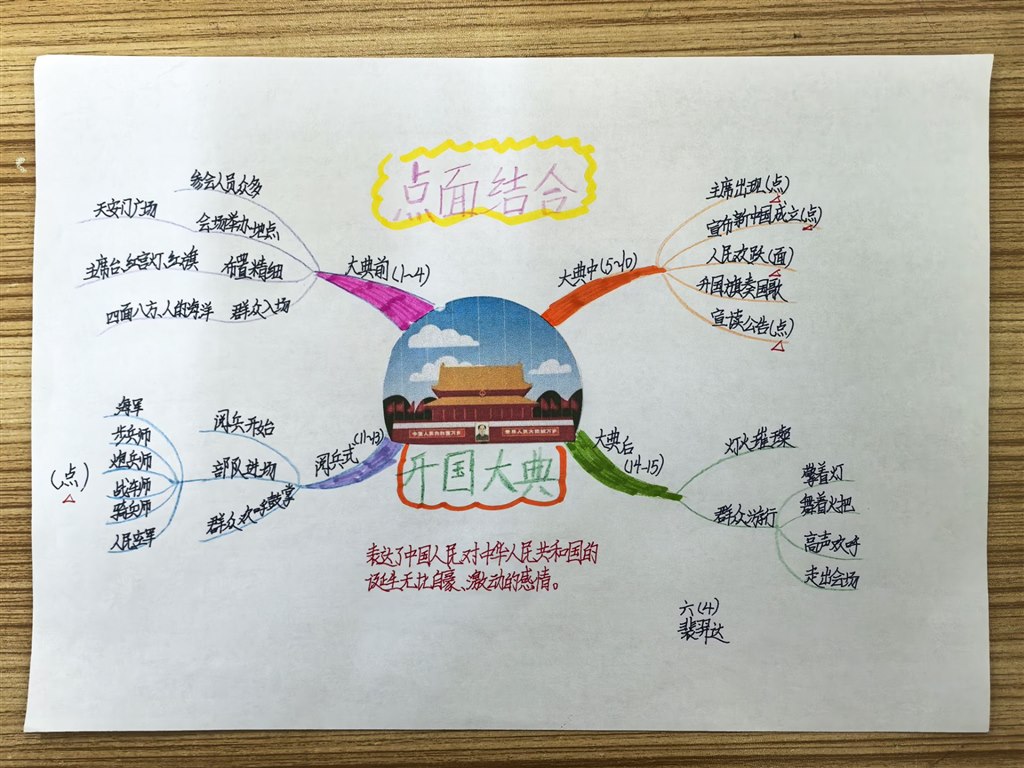 点面结合
大典前(1~4)
参会人员众多
会场举办地点
天安门广场
布置精细
主席台,红宫灯,红旗
群众入场
四面八方,人的海洋
大典中(5~10)
主席出现(点)
宣布新中国成立(点)
人民欢跃(面)
升国旗奏国歌
宣读公告(点)
阅兵式(11~13)
阅兵开始
部队进场
海军
步兵师
炮兵师
战车师
骑兵师
人民空军
(点)
群众欢呼鼓掌
大典后(14-15)
灯火璀璨
群众游行
擎着灯
舞着火把
高声欢呼
走出会场
中华人民共和国万岁
世界人民大团结万岁
开国大典
表达了中国人民对中华人民共和国的
诞生无比自豪、激动的感情。
六(4)